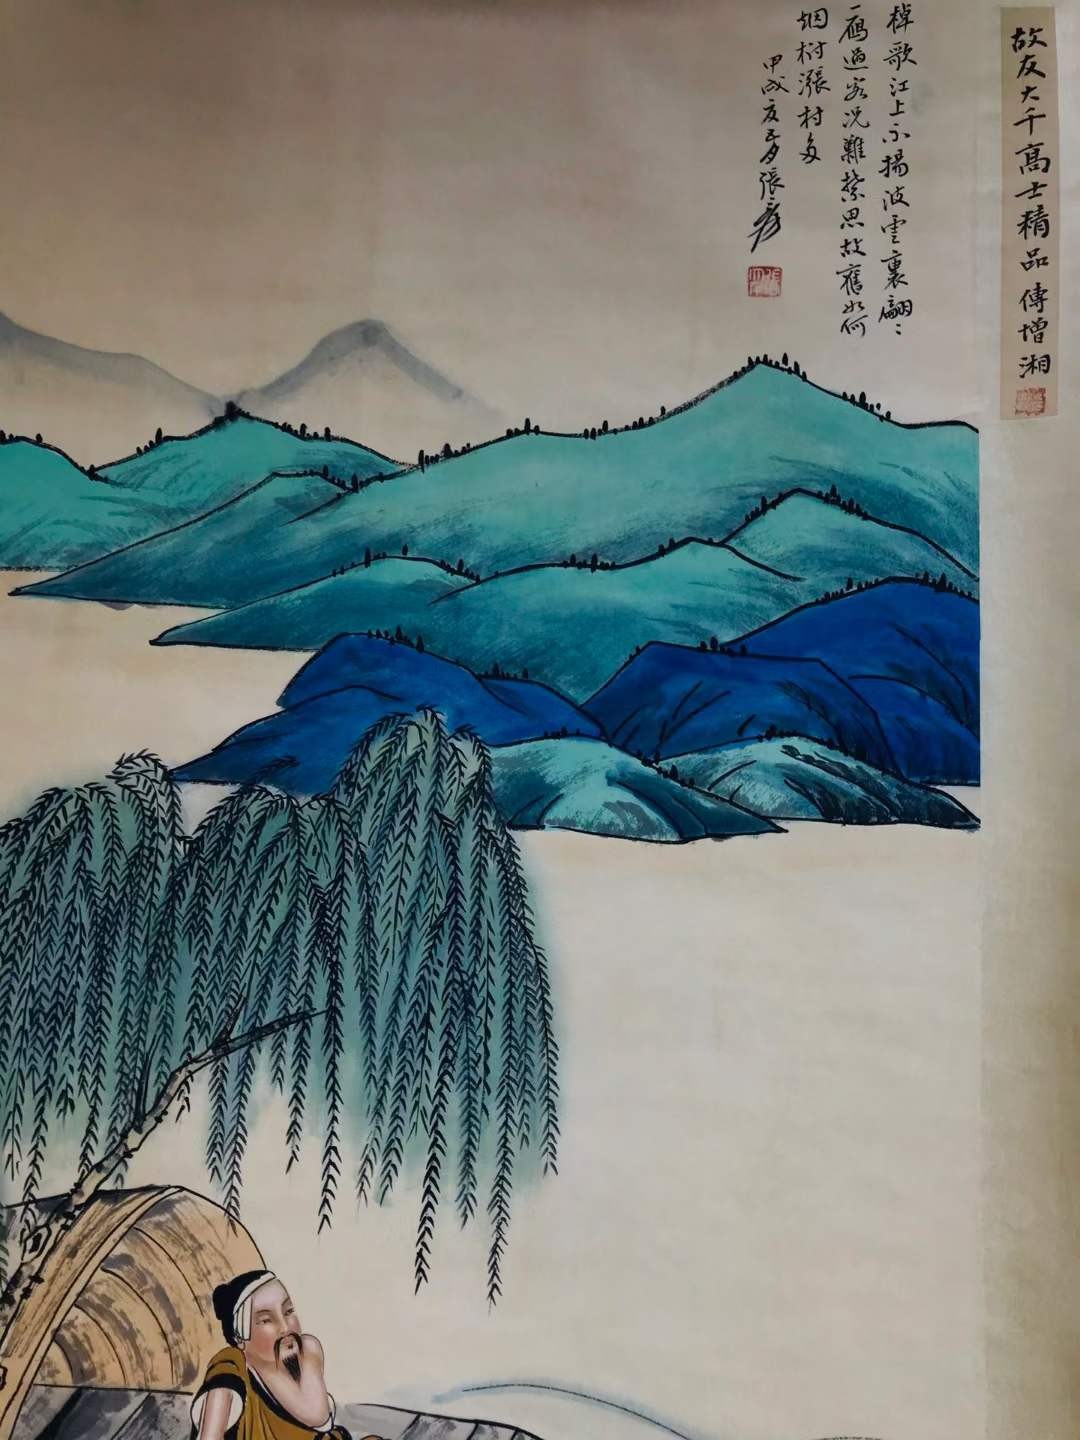 故友大千高士精品 傅增湘
棹歌江上不揚波雲裏翩〻
一雁過客況難禁思故舊如何
烟樹漲村多
甲戌夏五月張爰